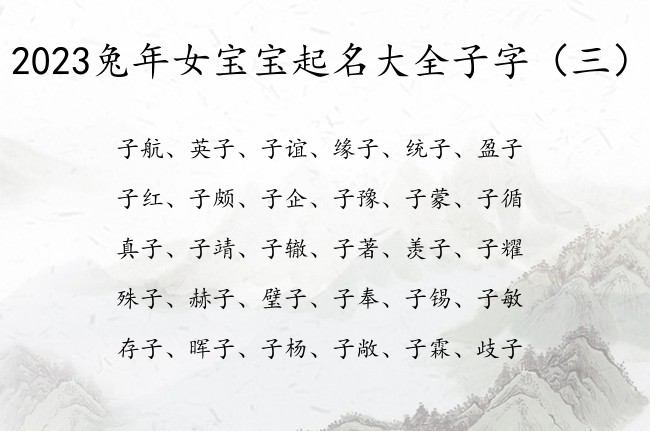 2023兔年女宝宝起名大全子字（三）
子航、英子、子谊、缘子、统子、盈子
子红、子颇、子企、子豫、子蒙、子循
真子、子靖、子辙、子著、羡子、子耀
殊子、赫子、璧子、子奉、子锡、子敏
存子、晖子、子杨、子敞、子霖、歧子